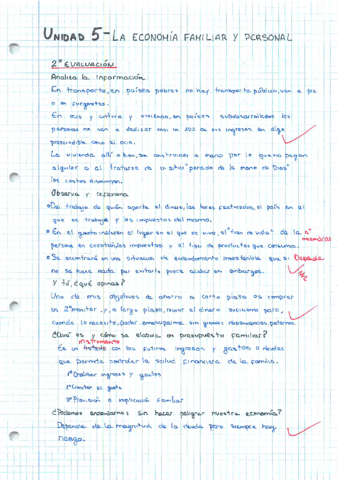 UNIDAD 5 - LA ECONOMÍA FAMILIAR Y PERSONAL
2ª EVALUACIÓN
Analiza la información
En transporte, en países pobres no hay transporte público, van a pie
o en furgonetas.
En ocio y cultura y vivienda, en países subdesarrollados las
personas no van a dedicar casi un 10% de sus ingresos en algo
prescindible como el ocio.
La vivienda allí o bien, se construye a mano por lo que no pagan
alquiler o al tratarse de un sitio "perdido de la mano de Dios"
los costes disminuyen.
Observa y reflexiona
Del trabajo de quien aporta el dinero, las horas realizadas, el país en el
que se trabaja y los impuestos del mismo.
En el gasto influyen el lugar en el que se vive, el "tren de vida" de la
nº miembros
persona en cuestión, los impuestos y el tipo de productos que consuma.
Se encontrará en una situación de endeudamiento insostenible que si
Depende
no se hace nada por evitarlo puede acabar en embargos.
Y tú, ¿qué opinas?
Uno de mis objetivos de ahorro a corto plazo es comprar
un 2º monitor y, a largo plazo, reunir el dinero suficiente para,
cuando lo necesite, poder emanciparme sin grandes
¿Qué es y cómo se elabora un presupuesto familiar?
instrumento
Es un tratado con los futuros ingresos y gastos o deudas
que permite controlar la salud financiera de la familia.
1º Analizar ingresos y gastos
2º el gasto
3º Previsión e implicación familiar
¿Podemos endeudarnos sin hacer peligrar nuestra economía?
Depende de la magnitud de la deuda pero siempre hay
riesgo.